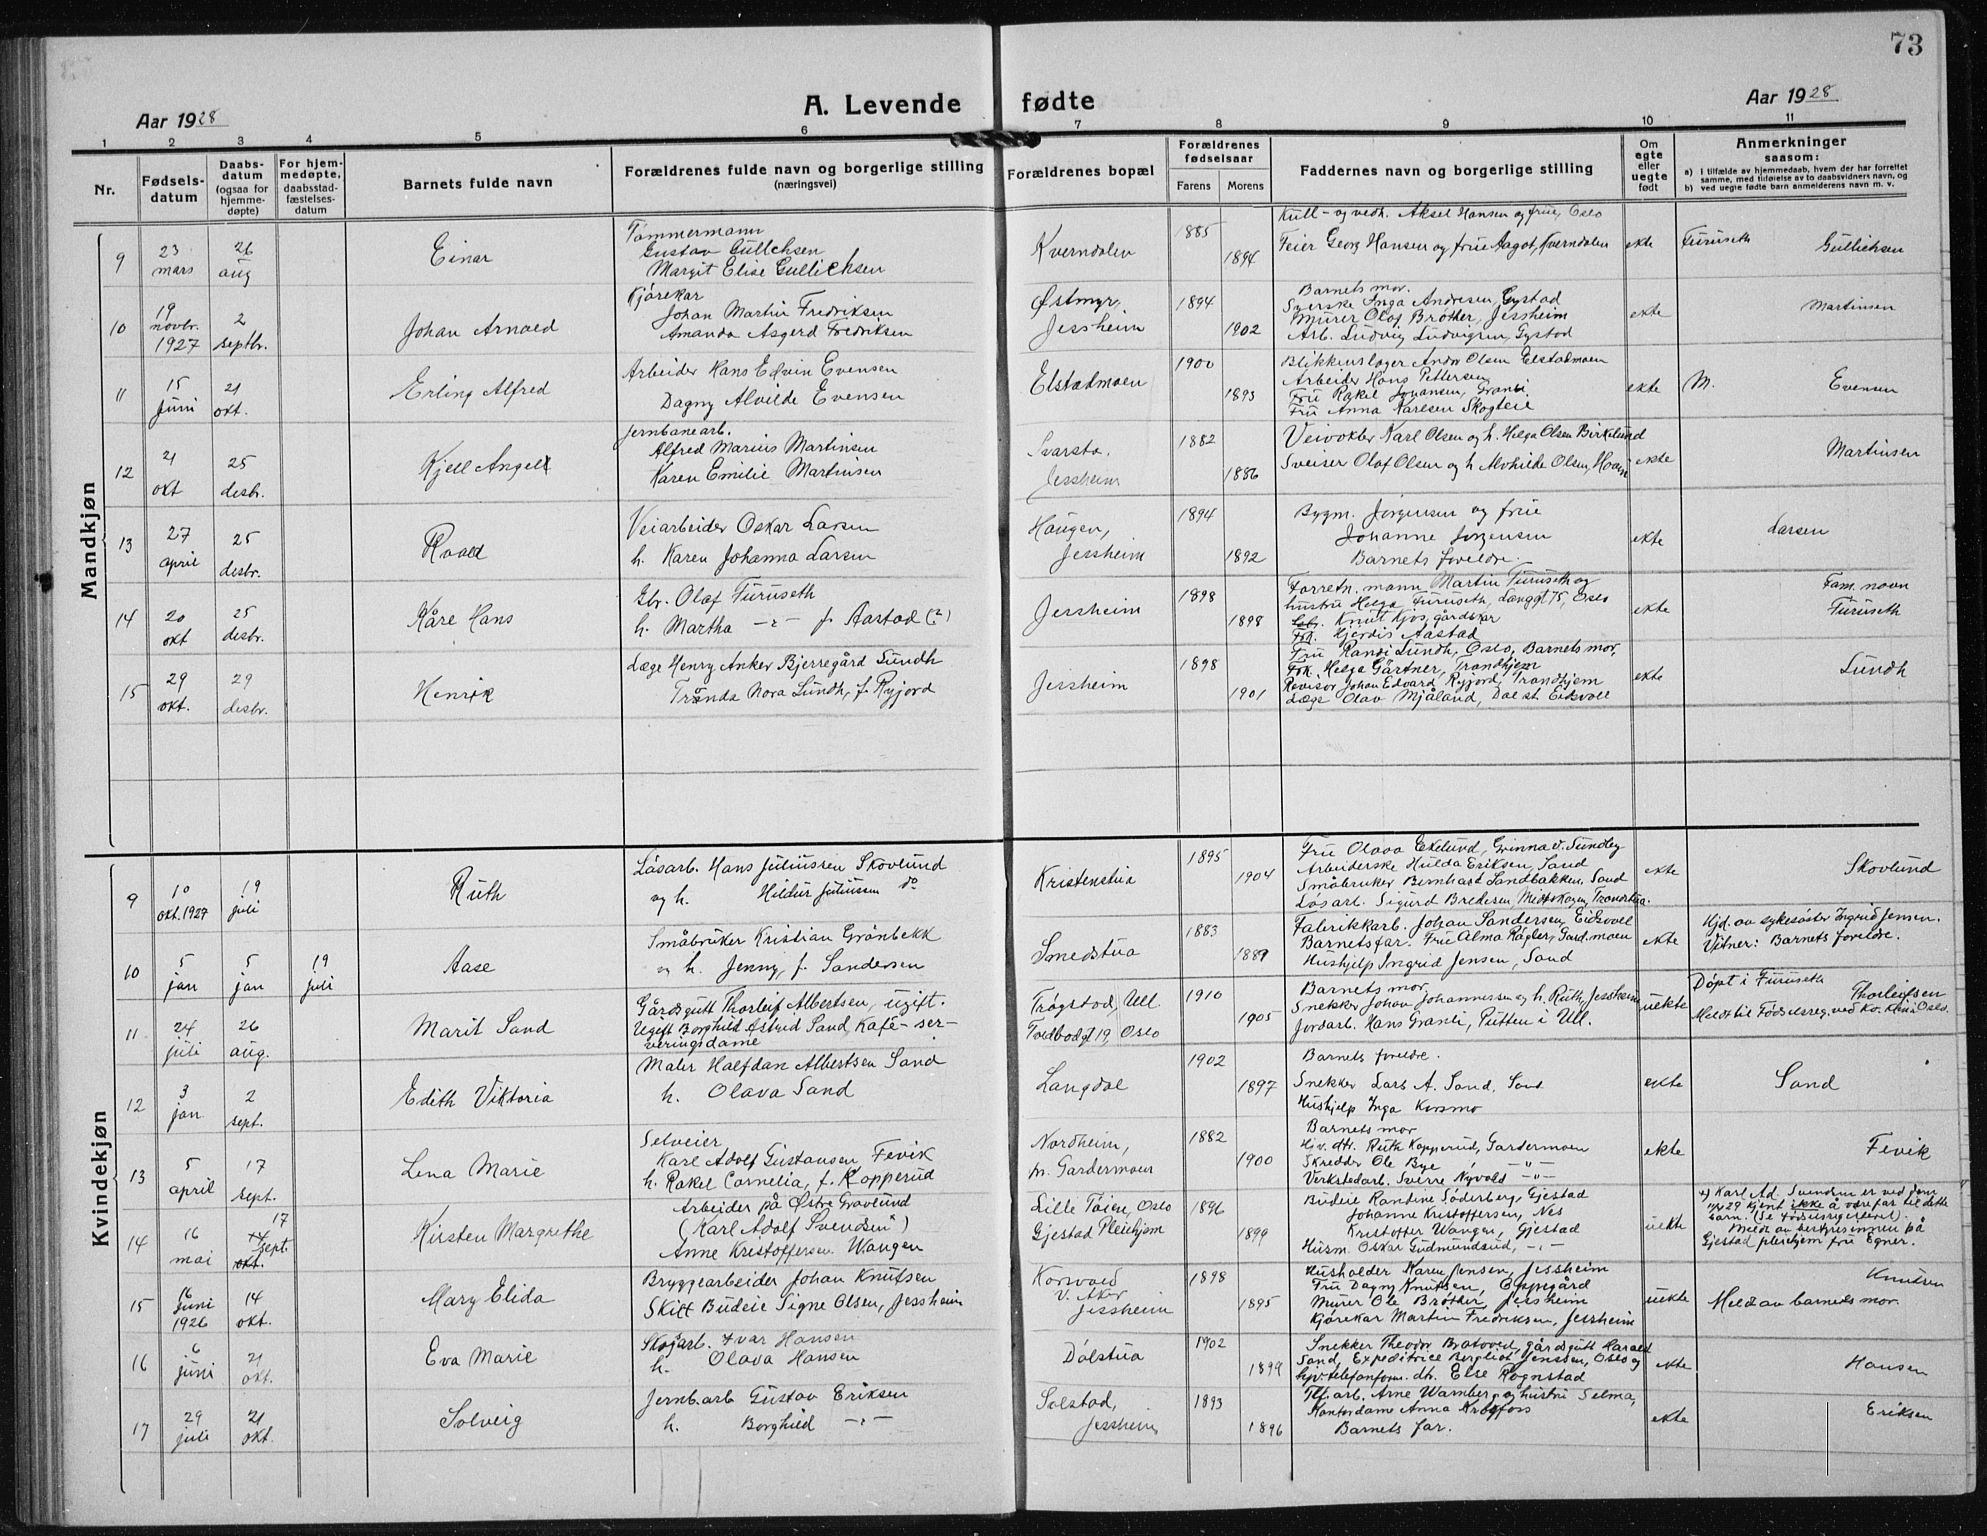 73
Aar 1928
A. Levende fødte
Aar 1928
1 2 3 4 5 6 7 8 9 10 11
Nr.
Fødsels-
datum
Daabs-
datum
(ogsaa for
hjemme-
døpte)
For hjem-
medøpte,
daabsstad-
fæstelses-
datum
Barnets fulde navn
Forældrenes fulde navn og borgerlige stilling
(næringsvei)
Forældrenes bopæl
Forældrenes
fødselsaar
Farens Morens
Faddernes navn og borgerlige stilling
Om
egte
eller
uegte
født
Anmerkninger
saasom:
a) i tilfælde av hjemmedaab, hvem der har forrettet
samme, med tilføielse av to daabsvidners navn, og
b) ved uegte fødte barn anmelderens navn m. v.
Mandkjøn
9
23
mars
26
aug
Einar
Tømmermann
Gustav Gullichsen
Margit Elise Gullichsen
Kverndalen
1885
1894
Kull- og vedh. Aksel Hansen og frue, Oslo
Feier Georg Hansen og frue Aagot, Kverndalen
ekte
Furuseth
Gullichsen
10
19
novbr.
1927
2
septbr.
Johan Arnold
Kjørekar
Johan Martin Fredriksen
Amanda Asgerd Fredriksen
Østmyr,
Jessheim
1894
1902
Barnets mor.
Syerske Inga Andresen, Gystad
Murer Olaf Brøther, Jessheim
Arb. Ludvig Ludvigsen, Gystad
ekte
Martinsen
11
15
juni
21
okt.
Erling Alfred
Arbeider Hans Edvin Evensen
Dagny Alvilde Evensen
Elstadmoen
1900
1893
Blikkenslager Andr. Olsen Elstadmoen
Arbeider Hans Pettersen
Fru Rakel Johansen, Granli
Fru Anna Karlsen Skogteie
ekte
M.
Evensen
12
21
okt
25
desbr.
Kjell Angell
Jernbanearb.
Alfred Marius Martinsen
Karen Emilie Martinsen
Svarsta.
Jessheim
1882
1886
Veivokter Karl Olsen og h. Helga Olsen Birkelund
Sveiser Olaf Olsen og h Alvhilde Olsen, Hovin
ekte
Martinsen
13
27
april
25
desbr.
Roald
Veiarbeider Oskar Larsen
h. Karen Johanna Larsen
Haugen,
Jessheim
1894
1892
Bygm. Jørgensen og frue
Johanne Jørgensen
Barnets foreldre.
ekte
Larsen
14
20
okt
25
desbr.
Kåre Hans
Gbr. Olaf Furuseth
h. Martha -"- f. Aastad (?)
Jessheim
1898
1898
Forretn.mann Martin Furuseth og
hustru Helga Furuseth, Langgt 75, Oslo
Gbr. Knut Kjos, gårdskar
Frk. Hjørdis Aastad
ekte
Fam. navn
Furuseth
15
29
okt.
29
desbr.
Henrik
Læge Henry Anker Bjerregård Sundh
Trønda Nora Sundh, f. Ryjord
Jessheim
1898
1901
Fru Randi Sundh, Oslo, Barnets mor,
Frk. Helga Gärtner, Trondhjem
Revisor Johan Edvard Ryjord, Trondhjem
Læge Olav Mjåland, Dal st. Eidsvoll
ekte
Sundh
Kvindekjøn
9
10
okt. 1927
19
juli
Ruth
Løsarb. Hans Juliussen Skovlund
og h. Hildur Juliussen do
Kristenstua
1895
1904
Fru Olava Eklund, Grinna v. Sundby
Arbeiderske Hulda Eriksen, Sand
Småbruker Bernhard Sandbakken, Sand
Løsarb. Sigurd Bredesen Meldskogen, Tranorbya.
ekte
Skovlund
10
5
jan
5
jan
19
juli
Aase
Småbruker Kristian Grønbekk
og h. Jenny, f. Sandersen
Smedstua
1883
1889
Fabrikkarb. Johan Sandersen, Eidsvoll
Barnets far. Frue Alma Ragler, Gard.moen
Hushjelp Ingrid Jensen, Sand
ekte
Hjd. av sykesøster Ingrid Jensen.
Vitner: Barnets foreldre.
11
24
juli
26
aug.
Marit Sand
Gårdsgutt Thorleif Albertsen, ugift.
Ugift Borghild Astrid Sand, Kafe-ser-
veringsdame
Trøgstad, Ull.
Toldbodgt 19, Oslo
1910
1905
Barnets mor
Snekker Johan Johannessen og h. Ruth, Jessheim
Jordarb. Hans Granli, Putten i Ull.
uekte
Døpt i Furuseth
Thorleifsen
Meldt til Fødselsreg. ved Kv. Klin. Oslo.
12
3
jan
2
sept.
Edith Viktoria
Maler Halfdan Albertsen Sand
h. Olava Sand
Langdal
1902
1897
Barnets foreldre.
Snekker Lars A. Sand, Sand
Hushjelp Inga Korsmo
ekte
Sand
13
5
april
17
sept.
Lena Marie
Selveier
Karl Adolf Gustavsen Fevik
h. Rakel Cornelia, f. Kopperud
Nordheim,
pr. Gardermoen
1882
1900
Barnets mor
Hjv. dtr. Ruth Kopperud, Gardermoen
Skredder Ole Bye -"-
Verkstedarb. Sverre Nyvold -"-
ekte
Fevik
14
16
mai
17
sept.
okt.
Kirsten Margrethe
Arbeider på Østre Gravlund
(Karl Adolf Svendsen)
Anne Kristoffersen Wangen
Lille Tøien, Oslo
Gjestad Pleiehjem
1896
1899
Budeie Randine Søderberg, Gjestad
Johanne Kristoffersen, Nes
Kristoffer Wangen, Gjestad
Husm. Oskar Gudmundsrud, -"-
uekte
x) Karl Ad. Svendsen er ved dom
29 kjent ikke å være far til dette
barn. (Se fødselsregisteret).
Meldt av bestyrerinnen på
Gjestad pleiehjem fru Egner.
15
16
juni
1926
14
okt.
Mary Elida
Bryggearbeider Johan Knutsen
Skilt Budeie Signe Olsen, Jessheim
Korsvold
v. Aker
Jessheim
1898
1895
Husholder Karen Jensen, Jessheim
Fru Dagny Knutsen, Oppegård
Murer Ole Brøther, Jessheim
Kjørekar Martin Fredriksen, Jessheim
uekte
Knutsen
Meldt av barnets mor.
16
6
juni
21
okt.
Eva Marie
Skogarb. Ivar Hansen
h. Olava Hansen
Dølstua
1902
1899
Snekker Theodor Bratvold, gårdsgutt Harald
Sand, Expeditrice Bergliot Jenssen, Oslo og
hjv. telefonform. dtr. Else Rognstad
ekte
Hansen
17
29
juli
21
okt.
Solveig
Jernbarb Gustav Eriksen
h. Borghild -"-
Solstad,
Jessheim
1893
1896
Tlf.arb. Arne Warnberg og hustru Selma,
Kontordame Anna Krogfoss
Barnets far.
ekte
Eriksen